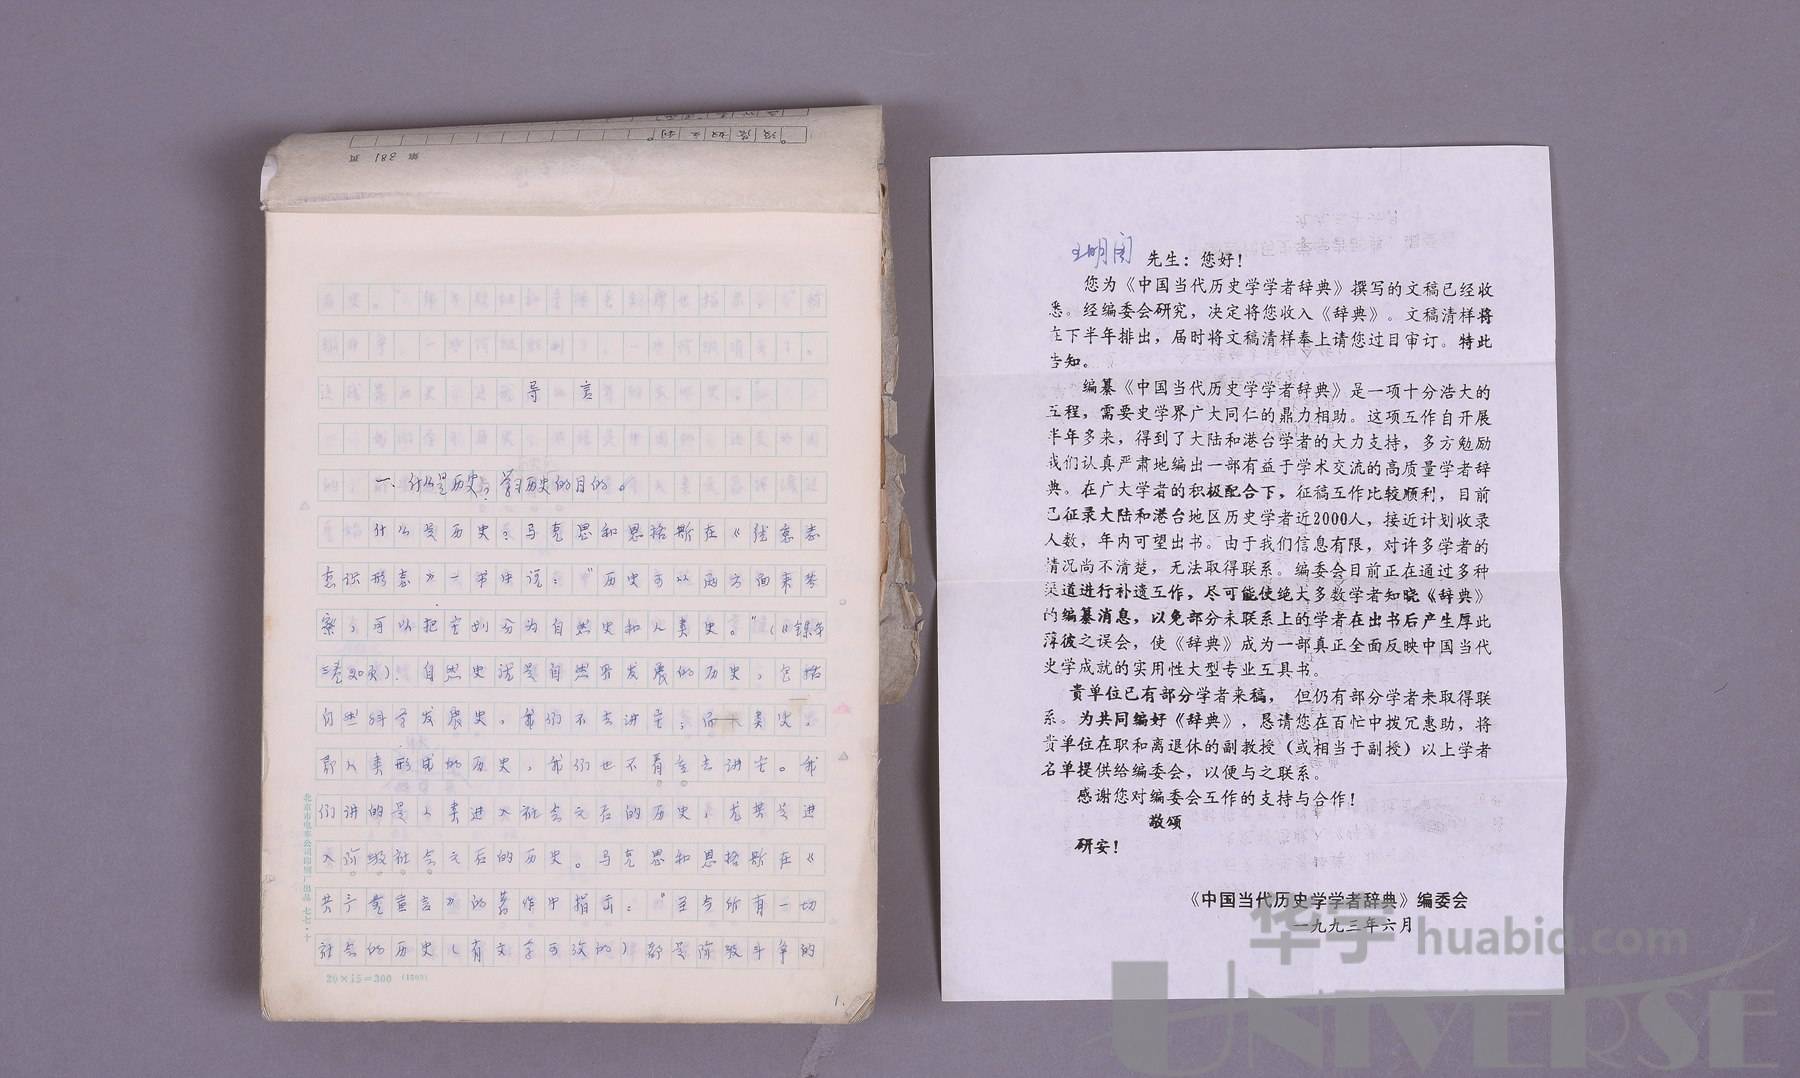 第 381 页
导 言
一、什么是历史？学习历史的目的。
什么是历史？马克思和恩格斯在《德意志
意识形态》一书中说："历史可以从两方面来考
察，可以把它划分为自然史和人类史。"（《全集》
三卷20页）。自然史就是自然界发展的历史，包括
自然科学发展史。我们不去讲它；而人类史，
即人类形成的历史，我们也不着重去讲它。我
们讲的是人类进入社会之后的历史，尤其是进
入阶级社会之后的历史。马克思和恩格斯在《
共产党宣言》的著作中指出："至今所有一切
社会的历史（有文字可考的）都是阶级斗争的
20×15=300 (1500)
北京市电车公司印刷厂出品 七七·十
1.
先生：您好！
您为《中国当代历史学学者辞典》撰写的文稿已经收
悉。经编委会研究，决定将您收入《辞典》。文稿清样将
在下半年排出，届时将文稿清样奉上请您过目审订。特此
告知。
编纂《中国当代历史学学者辞典》是一项十分浩大的
工程，需要史学界广大同仁的鼎力相助。这项工作自开展
半年多来，得到了大陆和港台学者的大力支持，多方勉励
我们认真严肃地编出一部有益于学术交流的高质量学者辞
典。在广大学者的积极配合下，征稿工作比较顺利，目前
已征录大陆和港台地区历史学者近2000人，接近计划收录
人数，年内可望出书。由于我们信息有限，对许多学者的
情况尚不清楚，无法取得联系。编委会目前正在通过多种
渠道进行补遗工作，尽可能使绝大多数学者知晓《辞典》
的编纂消息，以免部分未联系上的学者在出书后产生厚此
薄彼之误会，使《辞典》成为一部真正全面反映中国当代
史学成就的实用性大型专业工具书。
贵单位已有部分学者来稿，但仍有部分学者未取得联
系。为共同编好《辞典》，恳请您在百忙中拨冗惠助，将
贵单位在职和离退休的副教授（或相当于副授）以上学者
名单提供给编委会，以便与之联系。
感谢您对编委会工作的支持与合作！
敬颂
研安！
《中国当代历史学学者辞典》编委会
一九九三年六月
华宇 huabid.com
UNIVERSE